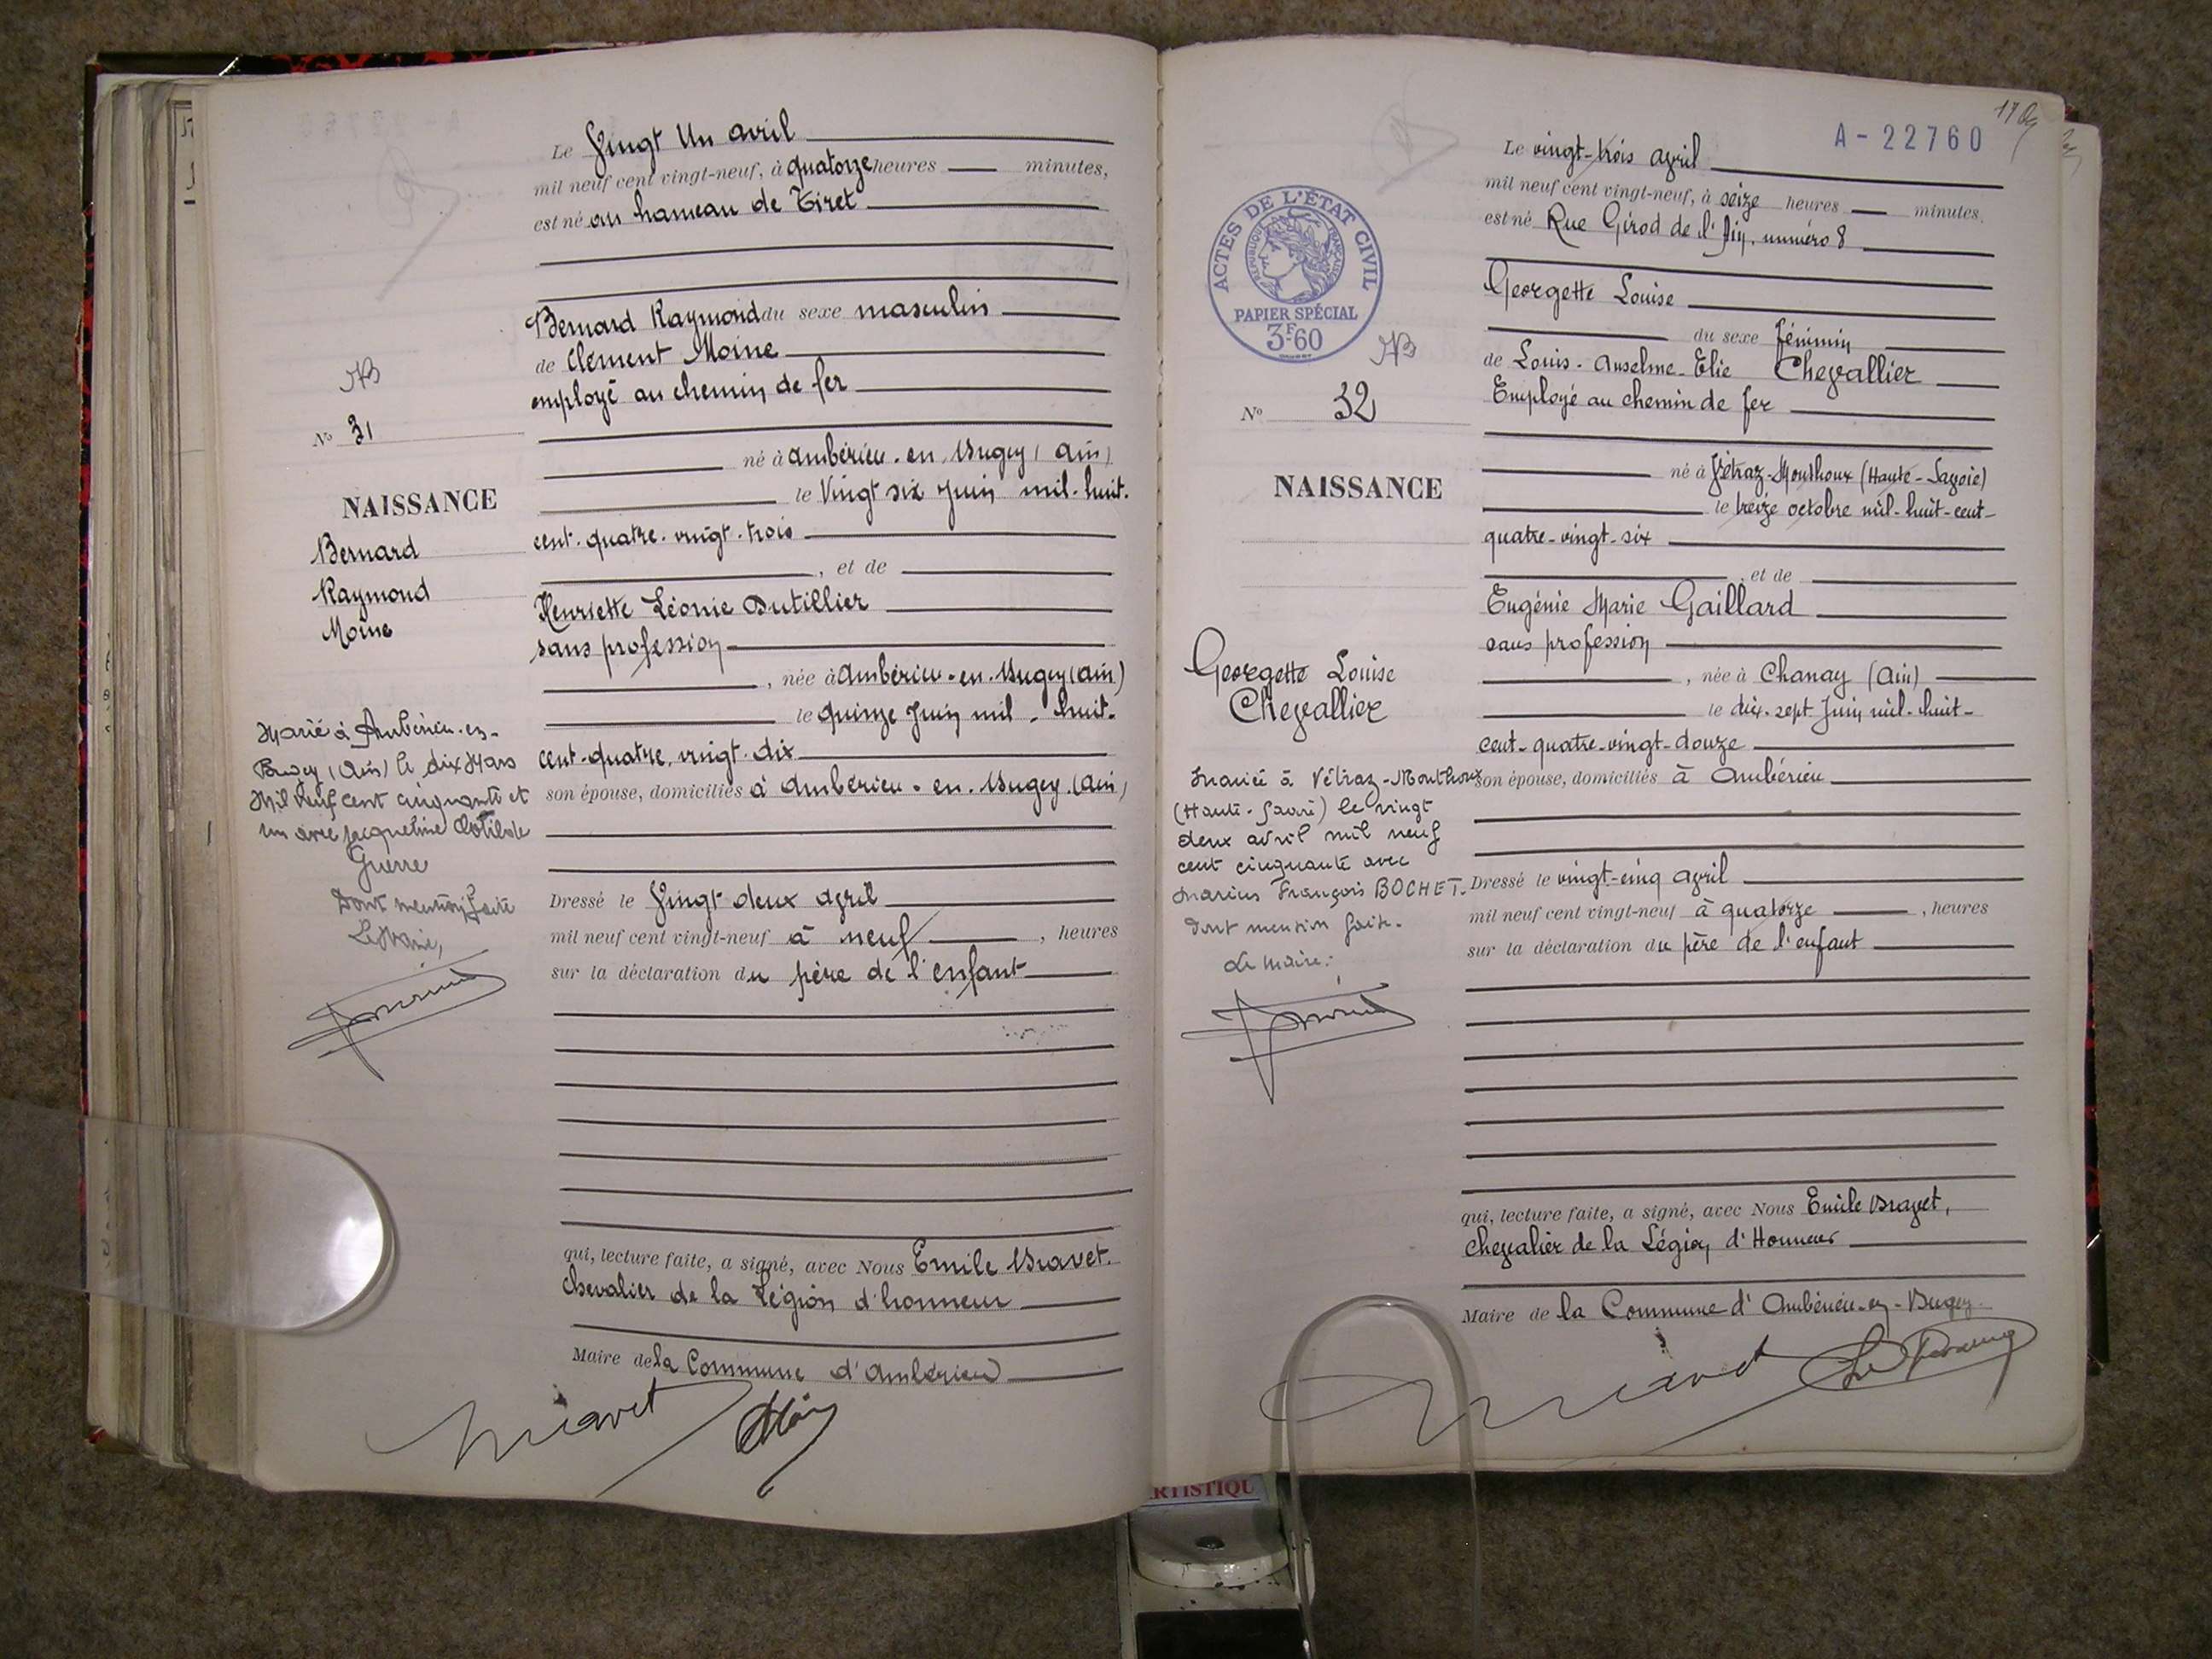 Le Vingt Un avril
mil neuf cent vingt-neuf, à quatorze heures — minutes,
est né au hameau de Tiret
Bernard Raymond du sexe masculin
de Clément Moine
employé au chemin de fer
né à Ambérieu-en-Bugey (Ain)
le Vingt six Juin mil-huit-
cent-quatre-vingt-trois
, et de
Henriette Léonie Dutillier
sans profession
, née à Ambérieu-en-Bugey (Ain)
le quinze Juin mil-huit-
cent-quatre-vingt-dix
son épouse, domiciliés à Ambérieu-en-Bugey (Ain)
Dressé le Vingt-deux avril
mil neuf cent vingt-neuf à neuf —, heures
sur la déclaration du père de l'enfant
qui, lecture faite, a signé, avec Nous Emile Bravet.
Chevalier de la Légion d'honneur
Maire de la Commune d'Ambérieu
Bravet
N° 31
NAISSANCE
Bernard
Raymond
Moine
Marié à Ambérieu-en-
Bugey (Ain) le dix Mars
Mil neuf cent cinquante et
un avec Jacqueline Clotilde
Guerre
Dont mention faite
Le Maire,
A-22760
Le vingt-trois avril
mil neuf cent vingt-neuf, à seize heures — minutes.
est né Rue Girod de l'Ain, numéro 8
Georgette Louise
du sexe féminin
de Louis-Anselme-Elie Chevallier
Employé au chemin de fer
né à Vétraz-Monthoux (Haute-Savoie)
le treize octobre mil-huit-cent-
quatre-vingt-six
, et de
Eugénie Marie Gaillard
sans profession
, née à Chanay (Ain)
le dix-sept Juin mil-huit-
cent-quatre-vingt-douze
son épouse, domiciliés à Ambérieu
Dressé le vingt-cinq avril
mil neuf cent vingt-neuf à quatorze —, heures
sur la déclaration du père de l'enfant
qui, lecture faite, a signé, avec Nous Emile Bravet,
Chevalier de la Légion d'Honneur
Maire de la Commune d'Ambérieu-en-Bugey.
Bravet
ACTES DE L'ÉTAT CIVIL
RÉPUBLIQUE FRANÇAISE
PAPIER SPÉCIAL
3F60
N° 32
NAISSANCE
Georgette Louise
Chevallier
Mariée à Vétraz-Monthoux
(Haute-Savoie) le vingt
deux avril mil neuf
cent cinquante avec
Marius François BOCHET.
Dont mention faite.
Le Maire:
RTISTIQU